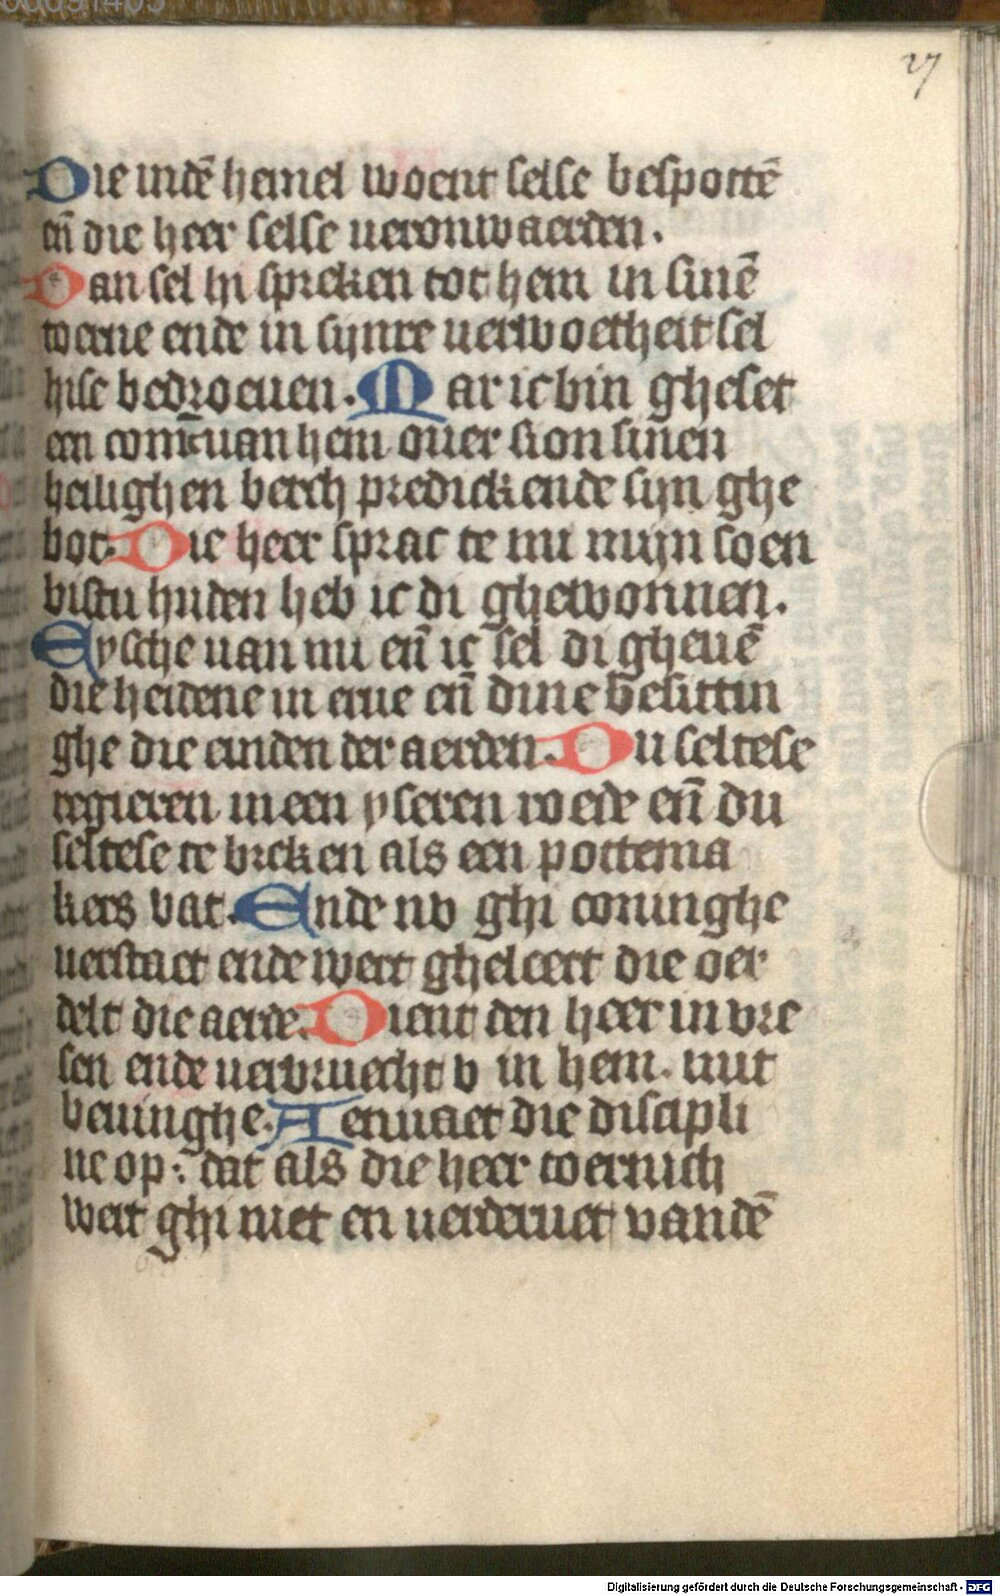 27
Die indē hemel woent selse bespottē
eñ die heer selse ueronwaerden.
Dan sel hi spreken tot hem in sinē
toerne ende in sijnre uerwoetheit sel
hise bedroeuen. Mar ic bin gheset
een coninc uan hem ouer sion sinen
heilighen berch predickende sijn ghe
bot. Die heer sprac te mi mijn soen
bistu huden heb ic di ghewonnen.
Eysche uan mi eñ ic sel di gheuē
die heidene in erue eñ dine besittin
ghe die einden der aerden. Du seltese
regieren in een yseren roede eñ du
seltese te breken als een pottema
kers vat. Ende nv ghi coninghe
uerstaet ende wert gheleert die oer
delt die aerde. Dient den heer in vre
sen ende uerbruecht v in hem. mit
beuinghe. Aenuaet die discipli
ne op: dat als die heer toernich
wert ghi niet en uerderuet vandē
Digitalisierung gefördert durch die Deutsche Forschungsgemeinschaft - DFG